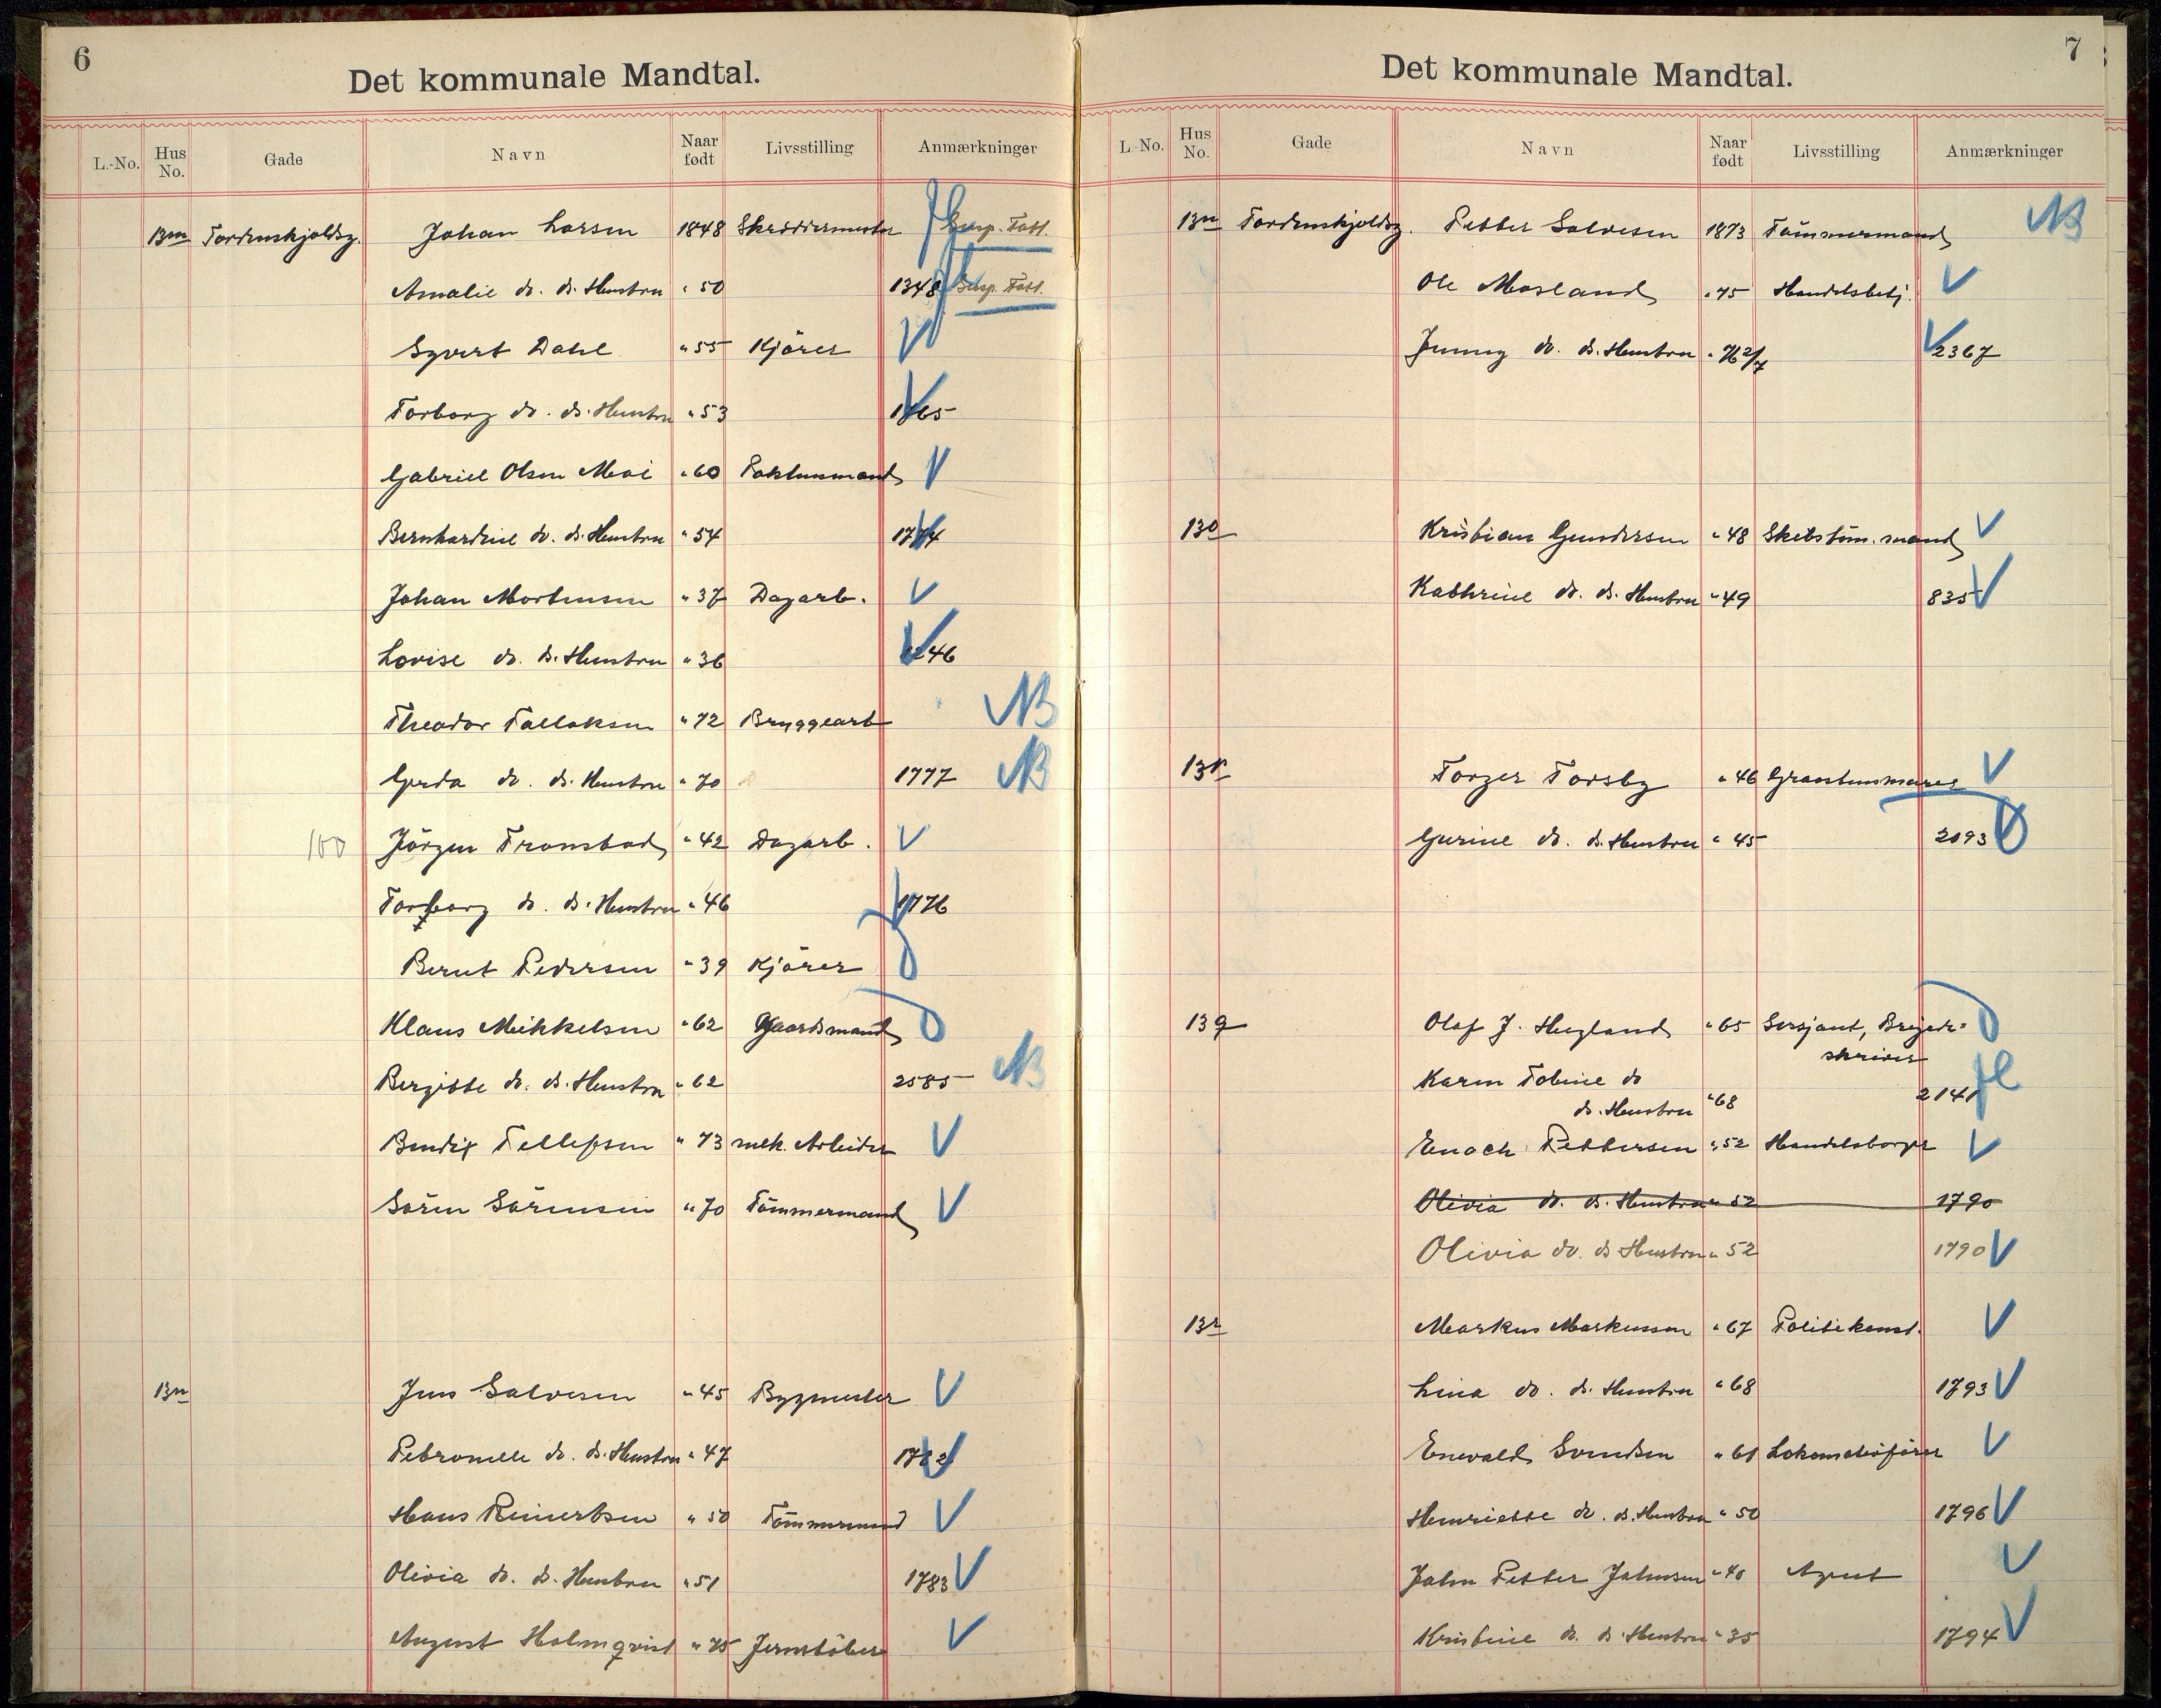 6
Det kommunale Mandtal.
L.-No. Hus No. Gade Navn Naar født Livsstilling Anmærkninger
13m Tordenskjoldsg. Johan Larsen 1848 Skræddermester Susp. Fatt.
Amalie do. ds. Hustru " 50 1348 Susp. Fatt.
Syvert Dahl " 55 Kjörer V
Torborg do. ds. Hustru " 53
Gabriel Olsen Moi " 60 Pakhusmand V
Bernhardine do. ds. Hustru " 54 1774 V
Johan Mortensen " 37 Dagarb. V
Lovise do. ds. Hustru " 36 V
Theodor Tallaksen " 72 Bryggearb NB
Gerda do. ds. Hustru " 70 1777 NB
100 Jörgen Tromstad " 42 Dagarb. V
Torborg do. ds. Hustru " 46 1776
Bernt Pedersen " 39 Kjörer
Klaus Mikkelsen " 62 Gaardsmand
Bergitte do. ds. Hustru " 62 2585 NB
Bendix Tellefsen " 73 mek. Arbeider V
Sören Sörensen " 70 Tömmermand V
13n Jens Salvesen " 45 Bygmester V
Petronelle do. ds. Hustru " 47 1782 V
Hans Reinertsen " 50 Tömmermand V
Olivia do. ds. Hustru " 51 1783 V
August Holmqvist " 75 Jernstöber V
7
Det kommunale Mandtal.
L.-No. Hus No. Gade Navn Naar født Livsstilling Anmærkninger
13n Tordenskjoldsg. Petter Salvesen 1873 Tömmermand NB
Ole Mosland " 75 Handelsbetj. V
Jenny do. ds. Hustru " 76 2/7 V 2367
13o Kristian Gundersen " 48 Skibstöm.mand V
Kathrine do. ds. Hustru " 49 835 V
13p Torger Torsby " 46 V
Gurine do. ds. Hustru " 45 2093 V
13q Olaf J. Hegland " 65 Sersjant, Brigade=
skriver
Karen Toline do
ds. Hustru " 68 2141 fl
Enoch Pettersen " 52 Handelsborger V
Olivia do. ds. Hustru " 52 1790
Olivia do. ds Hustru " 52 1790 V
13r Markus Markussen " 67 Politikonst. V
Lina do. ds. Hustru " 68 1793 V
Enevald Svendsen " 61 Lokomotivförer V
Henriette do. ds. Hustru " 50 1796 V
John Petter Johnsen " 40 Agent V
Kristine do. ds. Hustru " 35 1794 V